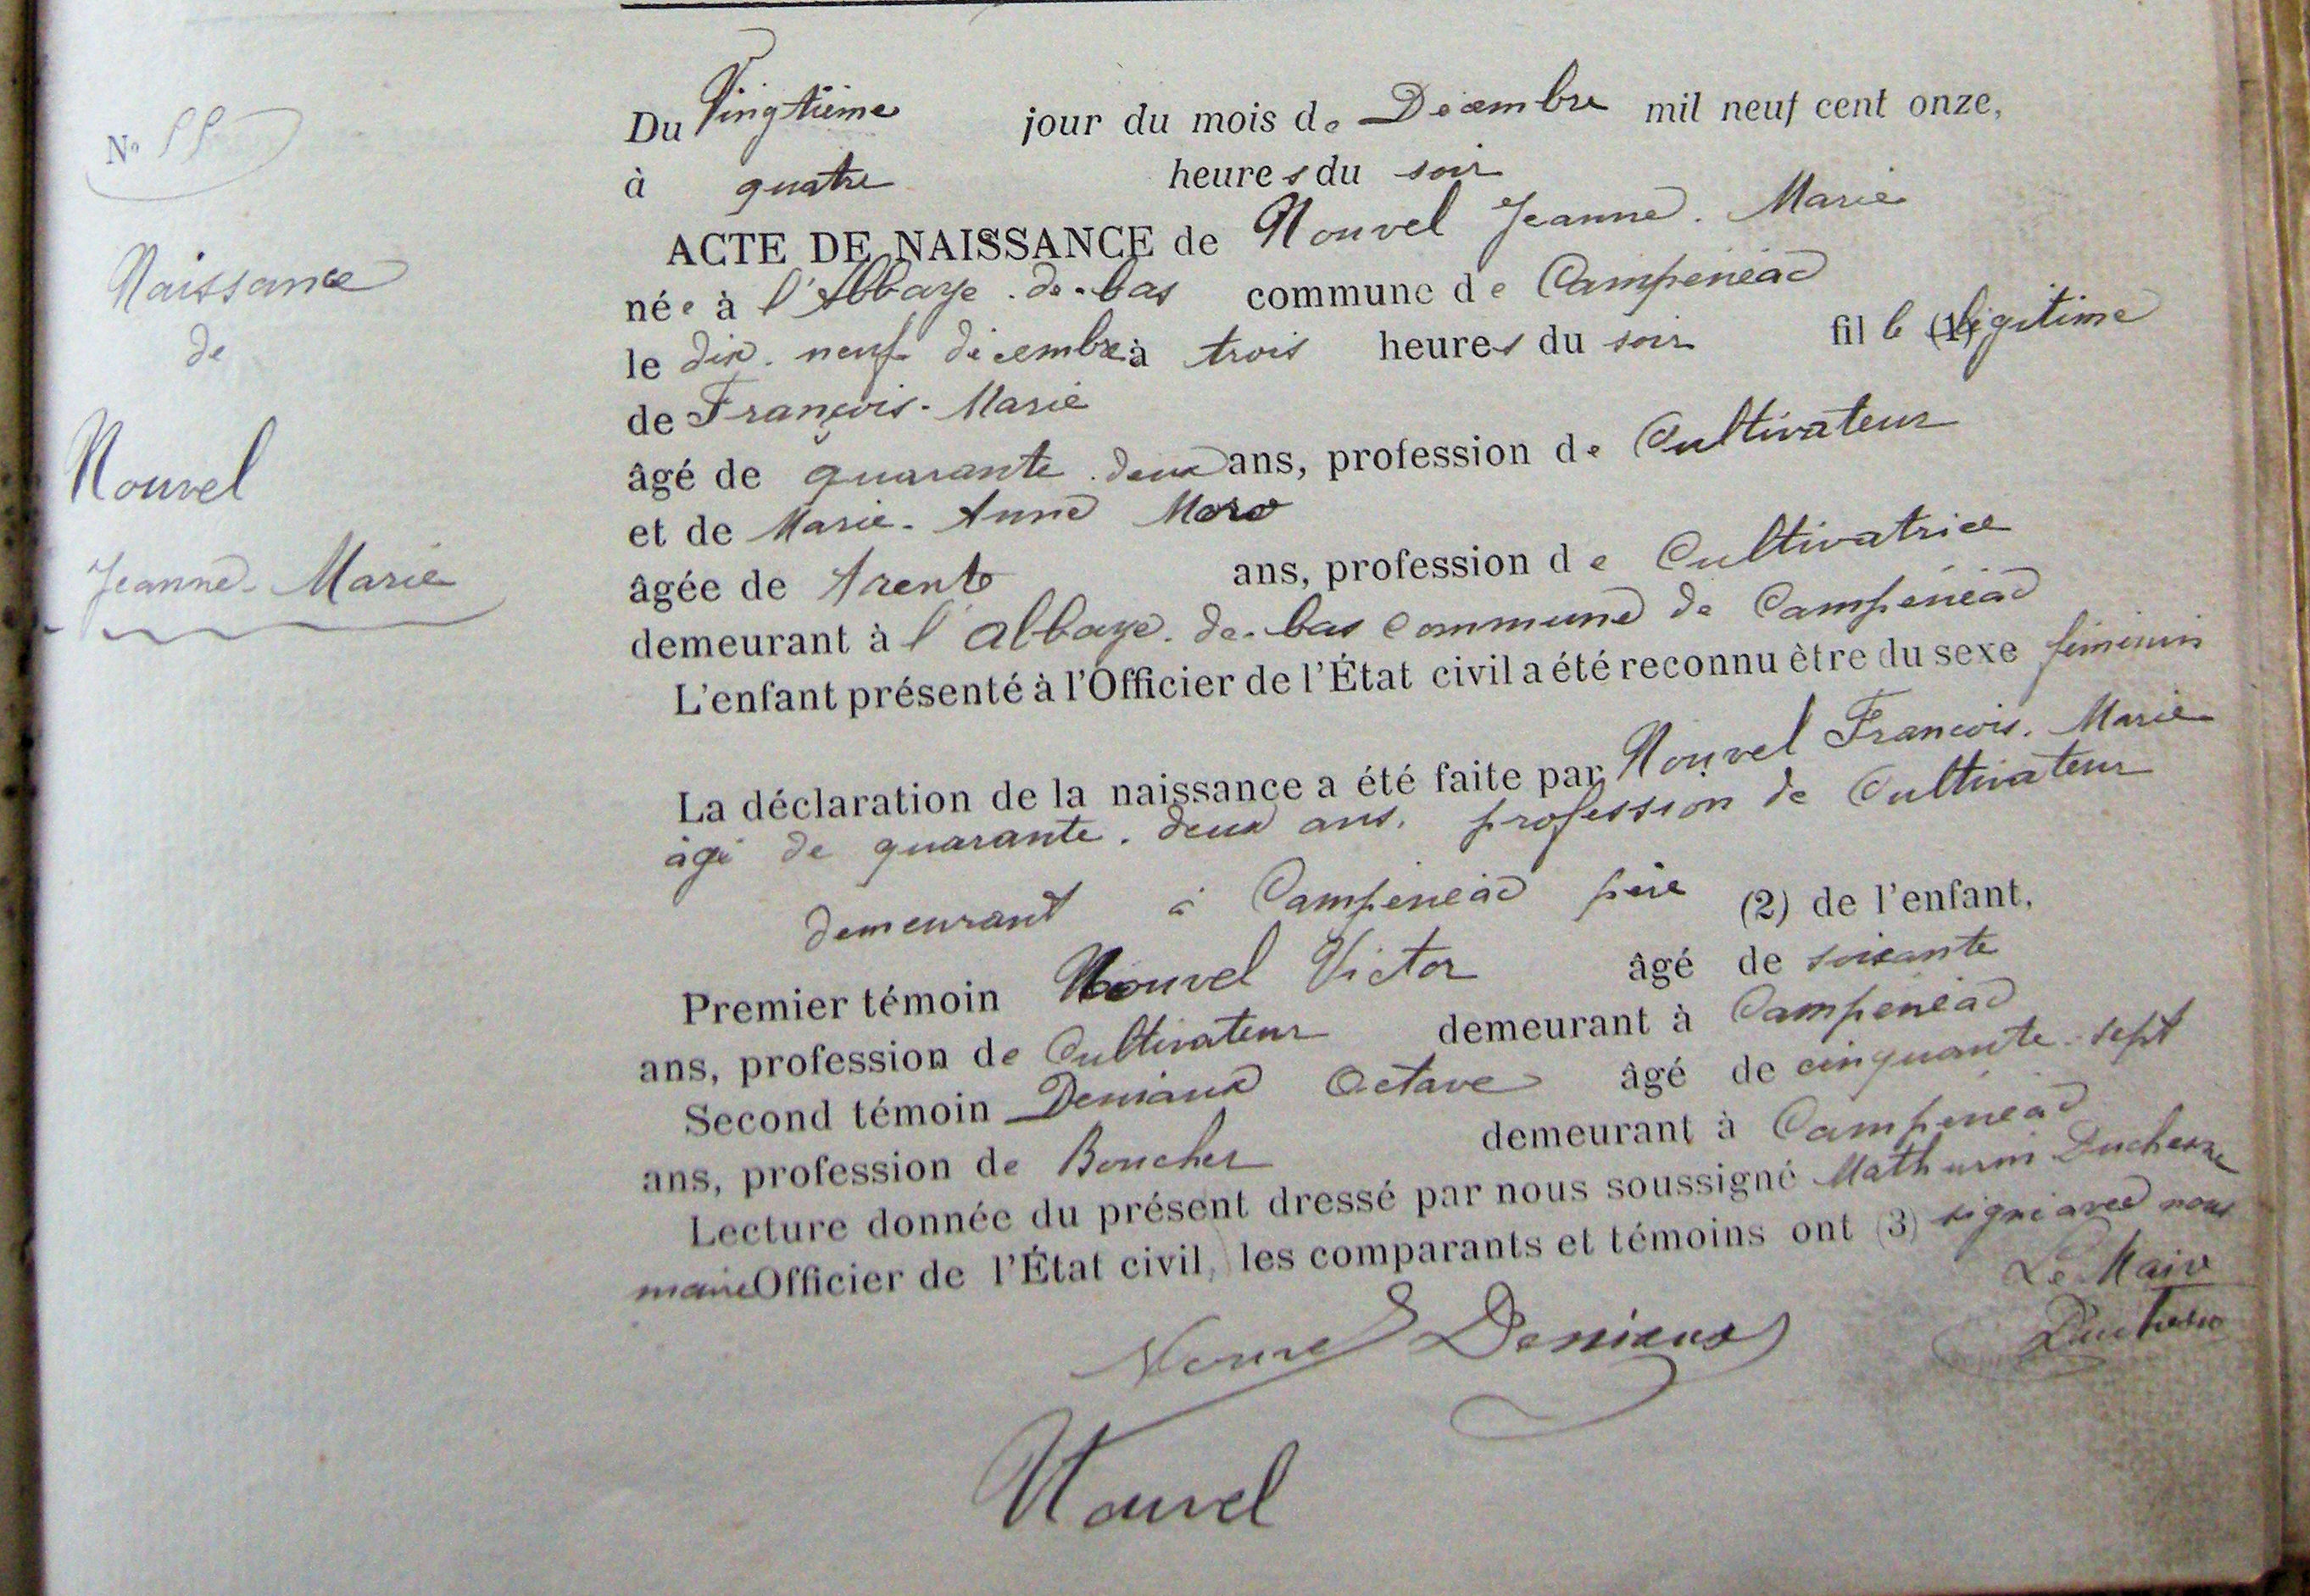 N° 55
Naissance
de
Nouvel
Jeanne-Marie
Du Vingtième jour du mois de Décembre mil neuf cent onze,
à quatre heures du soir
ACTE DE NAISSANCE de Nouvel Jeanne-Marie
née à l'Abbaye-de-bas commune de Campénéac
le dix-neuf décembre à trois heures du soir fille (1) légitime
de François-Marie
âgé de quarante-deux ans, profession de Cultivateur
et de Marie-Anne Moro
âgée de trente ans, profession de Cultivatrice
demeurant à l'abbaye-de-bas commune de Campénéac
L'enfant présenté à l'Officier de l'État civil a été reconnu être du sexe féminin
La déclaration de la naissance a été faite par Nouvel François-Marie
âgé de quarante-deux ans, profession de Cultivateur
demeurant à Campénéac père (2) de l'enfant,
Premier témoin Nouvel Victor âgé de soixante
ans, profession de Cultivateur demeurant à Campénéac
Second témoin Deniaux Octave âgé de cinquante-sept
ans, profession de Boucher demeurant à Campénéac
Lecture donnée du présent dressé par nous soussigné Mathurin Duchesne
maire Officier de l'État civil, les comparants et témoins ont (3) signé avec nous
Le Maire
Nouvel Deniaux Duchesne
Nouvel